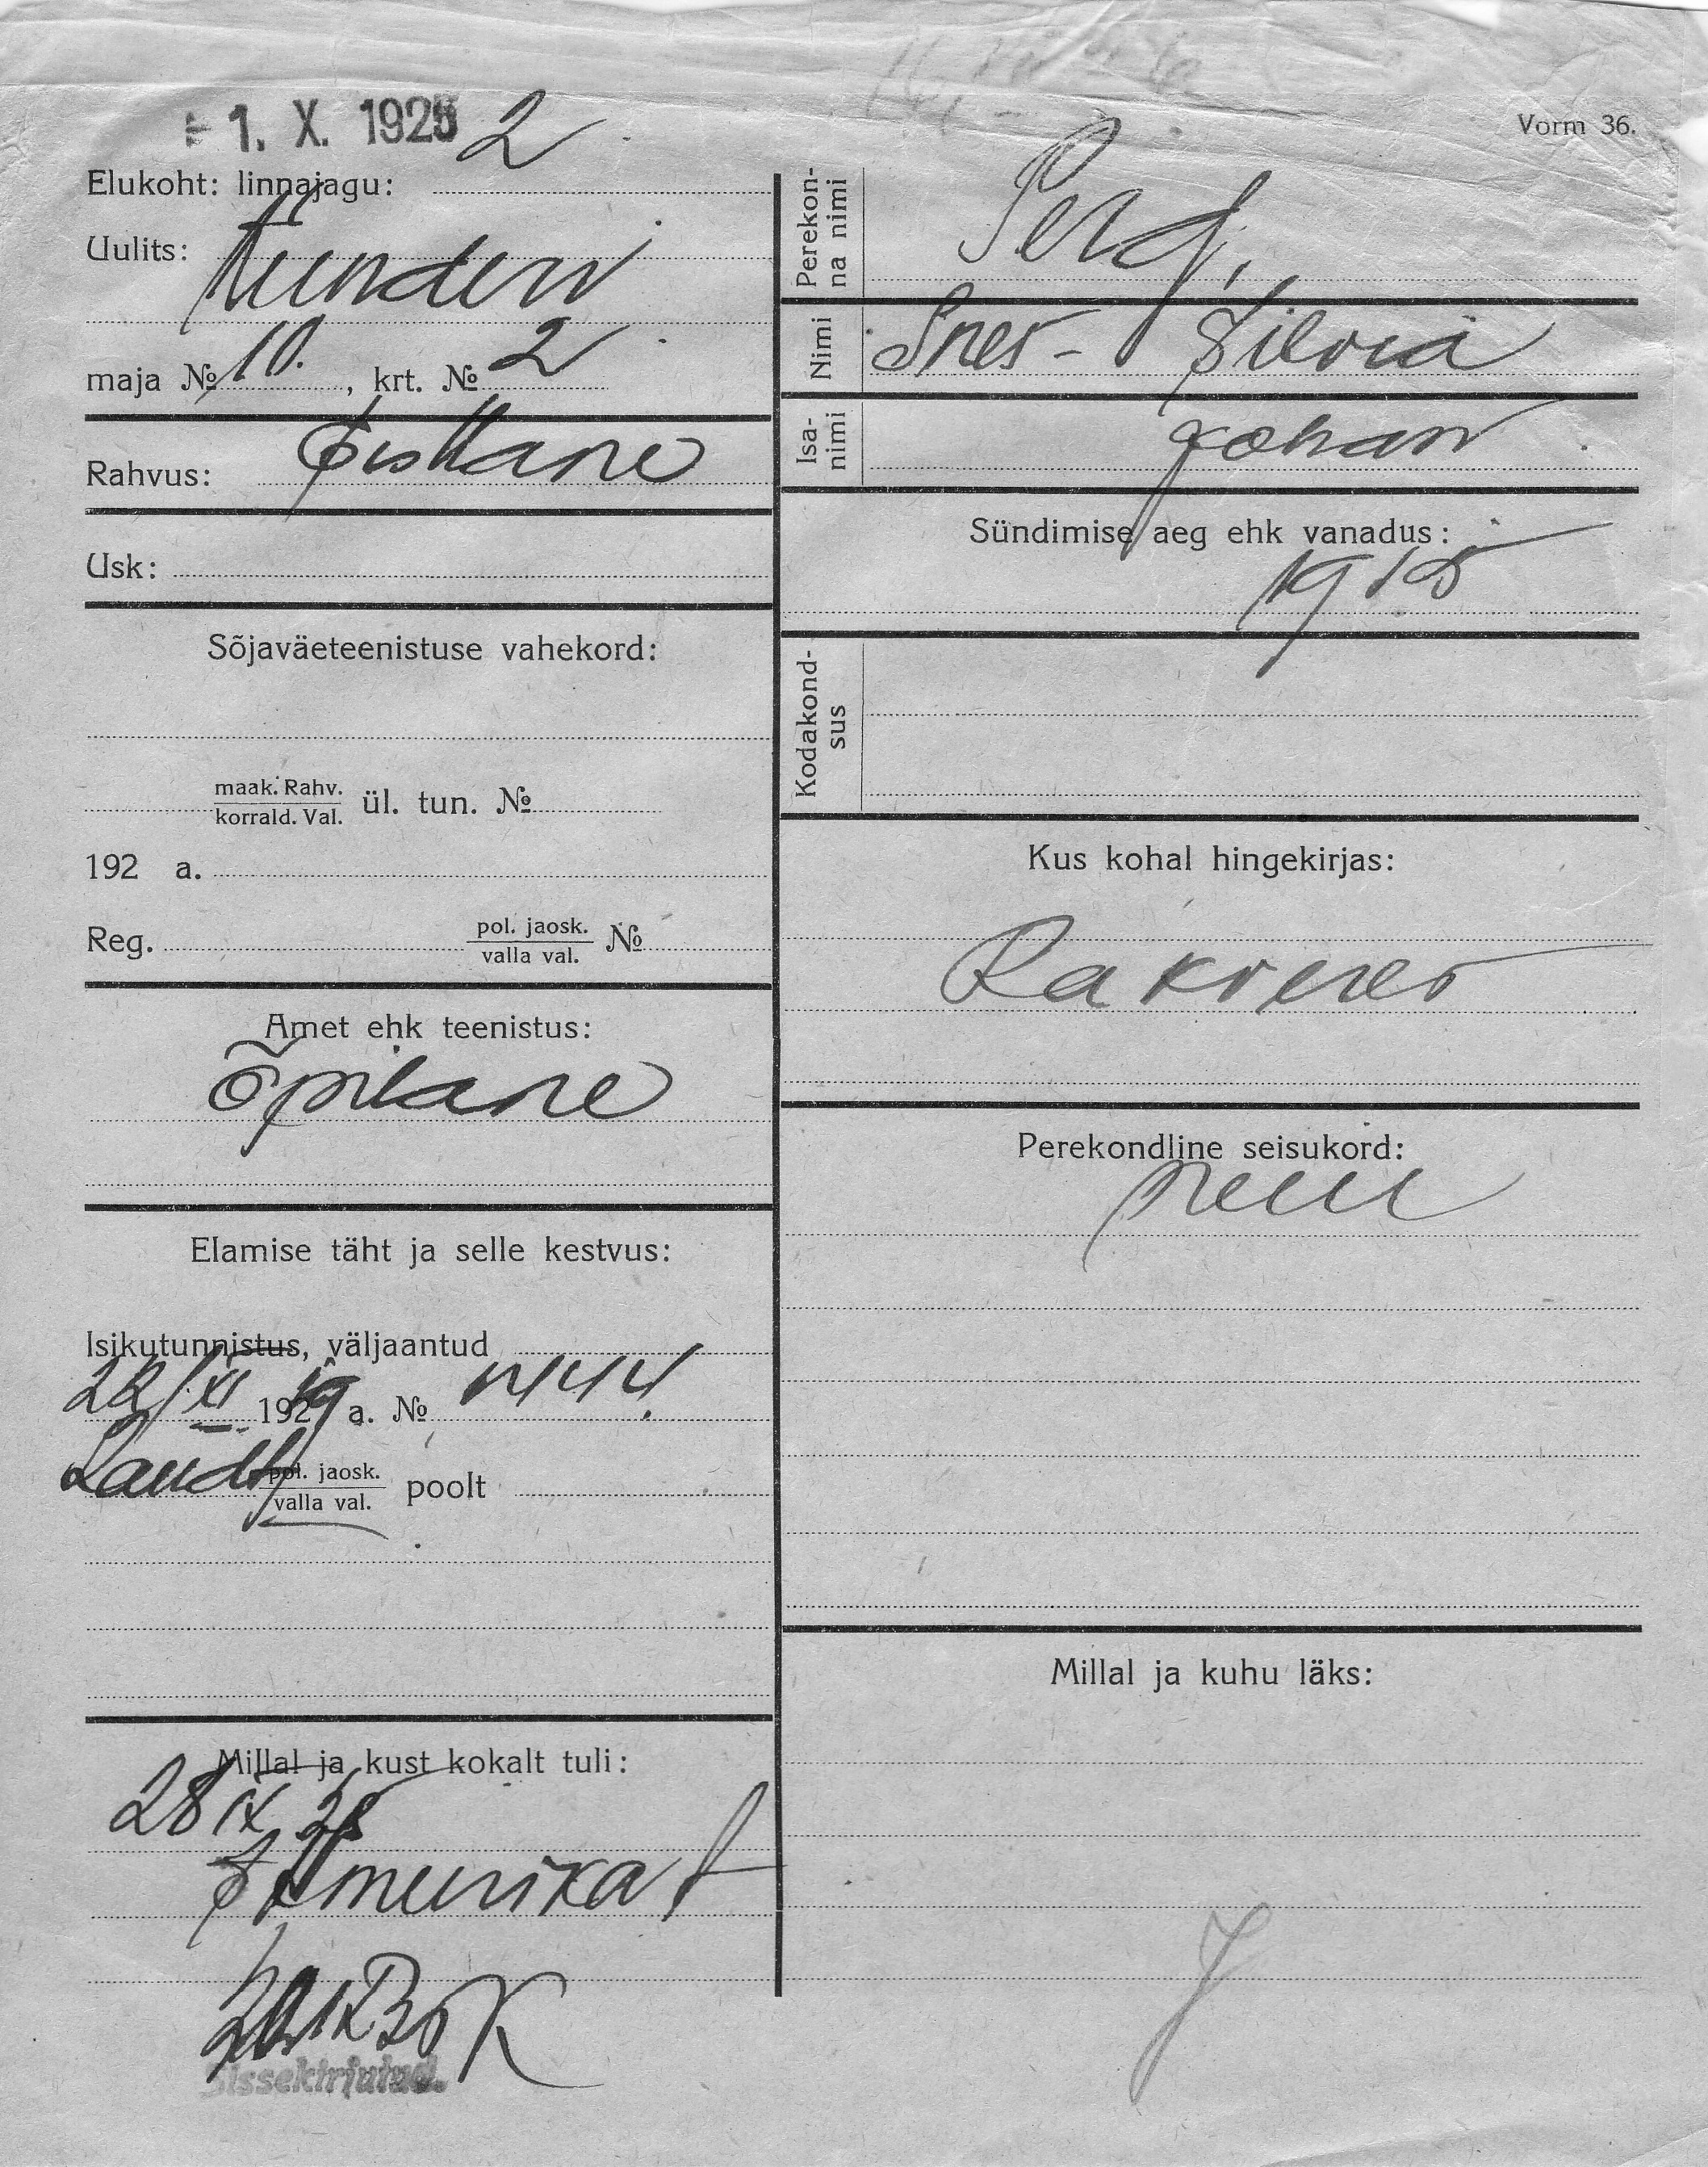 1. X. 1925
Vorm 36.
Elukoht: linnajagu: 2
Uulits: Kunderi
maja № 10. , krt. № 2
Rahvus: Eestlane
Usk:
Sõjaväeteenistuse vahekord:
maak. Rahv.
korrald. Val. ül. tun. №
192 a.
Reg. pol. jaosk.
valla val. №
Amet ehk teenistus:
Õpilane
Elamise täht ja selle kestvus:
Isikutunnistus, väljaantud
192 a. №
pol. jaosk.
valla val. poolt
Millal ja kust kokalt tuli:
28 IX 25
Ameerikast
Sissekirjutud.
Perekon-
na nimi
Nimi Ines- Silvia
Isa-
nimi Johan
Sündimise aeg ehk vanadus:
1915
Kodakond-
sus
Kus kohal hingekirjas:
Rakveres
Perekondline seisukord:
neiu
Millal ja kuhu läks: